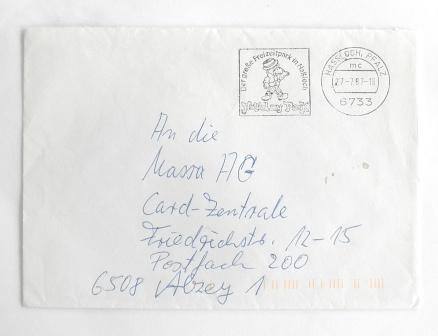 Der große Freizeitpark in Haßloch
Holiday Park
HASSLOCH, PFALZ
mc
27.-7.87-18
6733
An die
Massa AG
Card-Zentrale
Friedrichstr. 12-15
Postfach 200
6508 Alzey 1